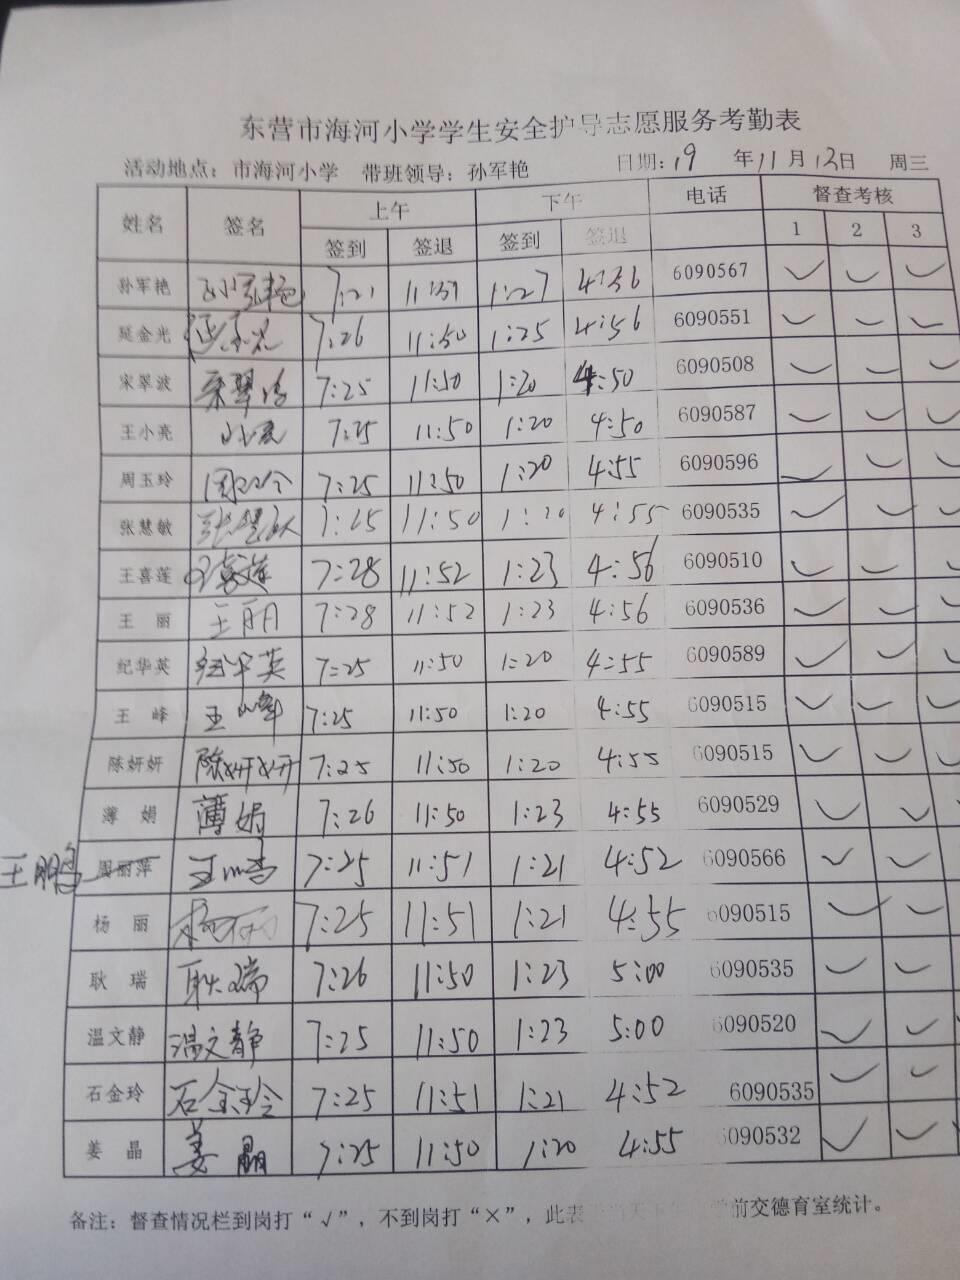 东营市海河小学学生安全护导志愿服务考勤表
活动地点：市海河小学 带班领导：孙军艳 日期：19 年11月13日 周三
姓名 签名 上午 下午 电话 督查考核
签到 签退 签到 签退 1 2 3
孙军艳 孙军艳 7:21 11:51 1:27 4:56 6090567 ✓ ✓ ✓
延金光 延金光 7:26 11:50 1:25 4:56 6090551 ✓ ✓ ✓
宋翠波 宋翠波 7:25 11:50 1:20 4:50 6090508 ✓ ✓ ✓
王小亮 7:25 11:50 1:20 4:50 6090587 ✓ ✓ ✓
周玉玲 周玉玲 7:25 11:50 1:20 4:55 6090596 ✓ ✓ ✓
张慧敏 张慧敏 7:25 11:50 1:20 4:55 6090535 ✓ ✓ ✓
王喜莲 王喜莲 7:28 11:52 1:23 4:56 6090510 ✓ ✓ ✓
王 丽 王丽 7:28 11:52 1:23 4:56 6090536 ✓ ✓ ✓
纪华英 纪华英 7:25 11:50 1:20 4:55 6090589 ✓ ✓ ✓
王 峰 王峰 7:25 11:50 1:20 4:55 6090515 ✓ ✓ ✓
陈妍妍 陈妍妍 7:25 11:50 1:20 4:55 6090515 ✓ ✓ ✓
薄 娟 薄娟 7:26 11:50 1:23 4:55 6090529 ✓ ✓
王鹏 周丽萍 7:25 11:51 1:21 4:52 6090566 ✓ ✓
杨 丽 杨丽 7:25 11:51 1:21 4:55 6090515 ✓ ✓
耿 瑞 耿瑞 7:26 11:50 1:23 5:00 6090535 ✓ ✓
温文静 温文静 7:25 11:50 1:23 5:00 6090520 ✓ ✓
石金玲 石金玲 7:25 11:51 1:21 4:52 6090535 ✓ ✓
姜 晶 姜晶 7:25 11:50 1:20 4:55 6090532 ✓ ✓
备注：督查情况栏到岗打“√”，不到岗打“×”，此表 前交德育室统计。